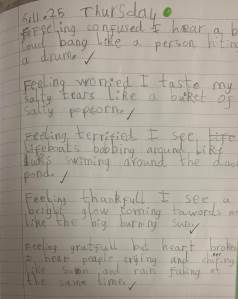 25 Thursday
feeling confused I hear a b
loud bang like a person hiting
a drum.
Feeling worried I taste my
salty tears like a bucket of
salty popcorn.
Feeling terrified I see life
lifeboats bobbing around like
ducks swiming around the duck
pond.
Feeling thankfull I see a
bright glow coming towards us
like the big burning sun.
Feeling gratfull but heart broken
I hear people crying and
like and rain faling at
the same time.